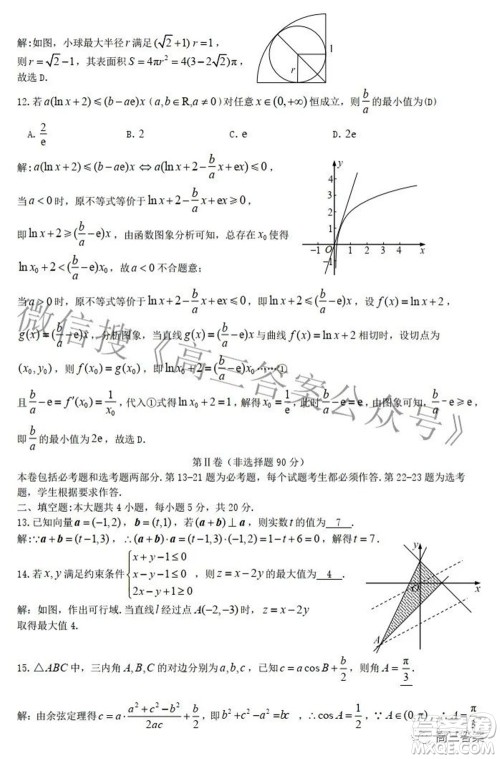 解:如图，小球最大半径 r 满足 (√2+1) r=1，
则 r=√2-1，其表面积 S=4πr²=4(3-2√2)π，
故选 D.
1
r
12.若 a(ln x+2)≤(b-ae)x (a,b∈R,a≠0) 对任意 x∈(0,+∞) 恒成立，则 b/a 的最小值为(D)
A. 2/e B. 2 C. e D. 2e
解: a(ln x+2)≤(b-ae)x ⇔ a(ln x+2-(b/a)x+ex)≤0，
当 a<0 时，原不等式等价于 ln x+2-(b/a)x+ex≥0，
即 ln x+2≥(b/a-e)x，由函数图象分析可知，总存在 x₀ 使得
ln x₀+2<(b/a-e)x₀，故 a<0 不合题意;
y
4
3
2
1
-1 O 1 2 3 4 x
-1
当 a>0 时，原不等式等价于 ln x+2-(b/a)x+ex≤0，即 ln x+2≤(b/a-e)x，设 f(x)=ln x+2，
g(x)=(b/a-e)x，分析图象，当直线 g(x)=(b/a-e)x 与曲线 f(x)=ln x+2 相切时，设切点为
(x₀,y₀)，则 f(x₀)=g(x₀)，即 ln x₀+2=(b/a-e)x₀ ……①
且 b/a-e=f′(x₀)=1/x₀，代入①式得 ln x₀+2=1，解得 x₀=1/e，此时 b/a-e=e，由图象可知，b/a-e≥e，
即 b/a 的最小值为 2e，故选 D.
微信搜《高三答案公众号》
第Ⅱ卷（非选择题 90 分）
本卷包括必考题和选考题两部分. 第 13-21 题为必考题，每个试题考生都必须作答. 第 22-23 题为选考题，学生根据要求作答.
二、填空题:本大题共 4 小题，每小题 5 分，共 20 分.
13.已知向量 a=(-1,2)，b=(t,1)，若 (a+b)⊥a，则实数 t 的值为 7 .
解:∵ a+b=(t-1,3)，∴ (a+b)·a=(t-1,3)·(-1,2)=1-t+6=0，解得 t=7.
14.若 x,y 满足约束条件 {x+y-1≤0 x-y-1≤0 2x-y+1≥0，则 z=x-2y 的最大值为 4 .
解:如图，作出可行域. 当直线 l 经过点 A(-2,-3) 时，z=x-2y
取得最大值 4.
y
O
x
A
15. △ABC 中，三内角 A,B,C 的对边分别为 a,b,c，已知 c=a cos B+b/2，则角 A=π/3.
解:由余弦定理得 c=a·(a²+c²-b²)/(2ac)+b/2，即 b²+c²-a²=bc，∴ cos A=1/2，∵ A∈(0,π)，∴ A=π/3
高三答案